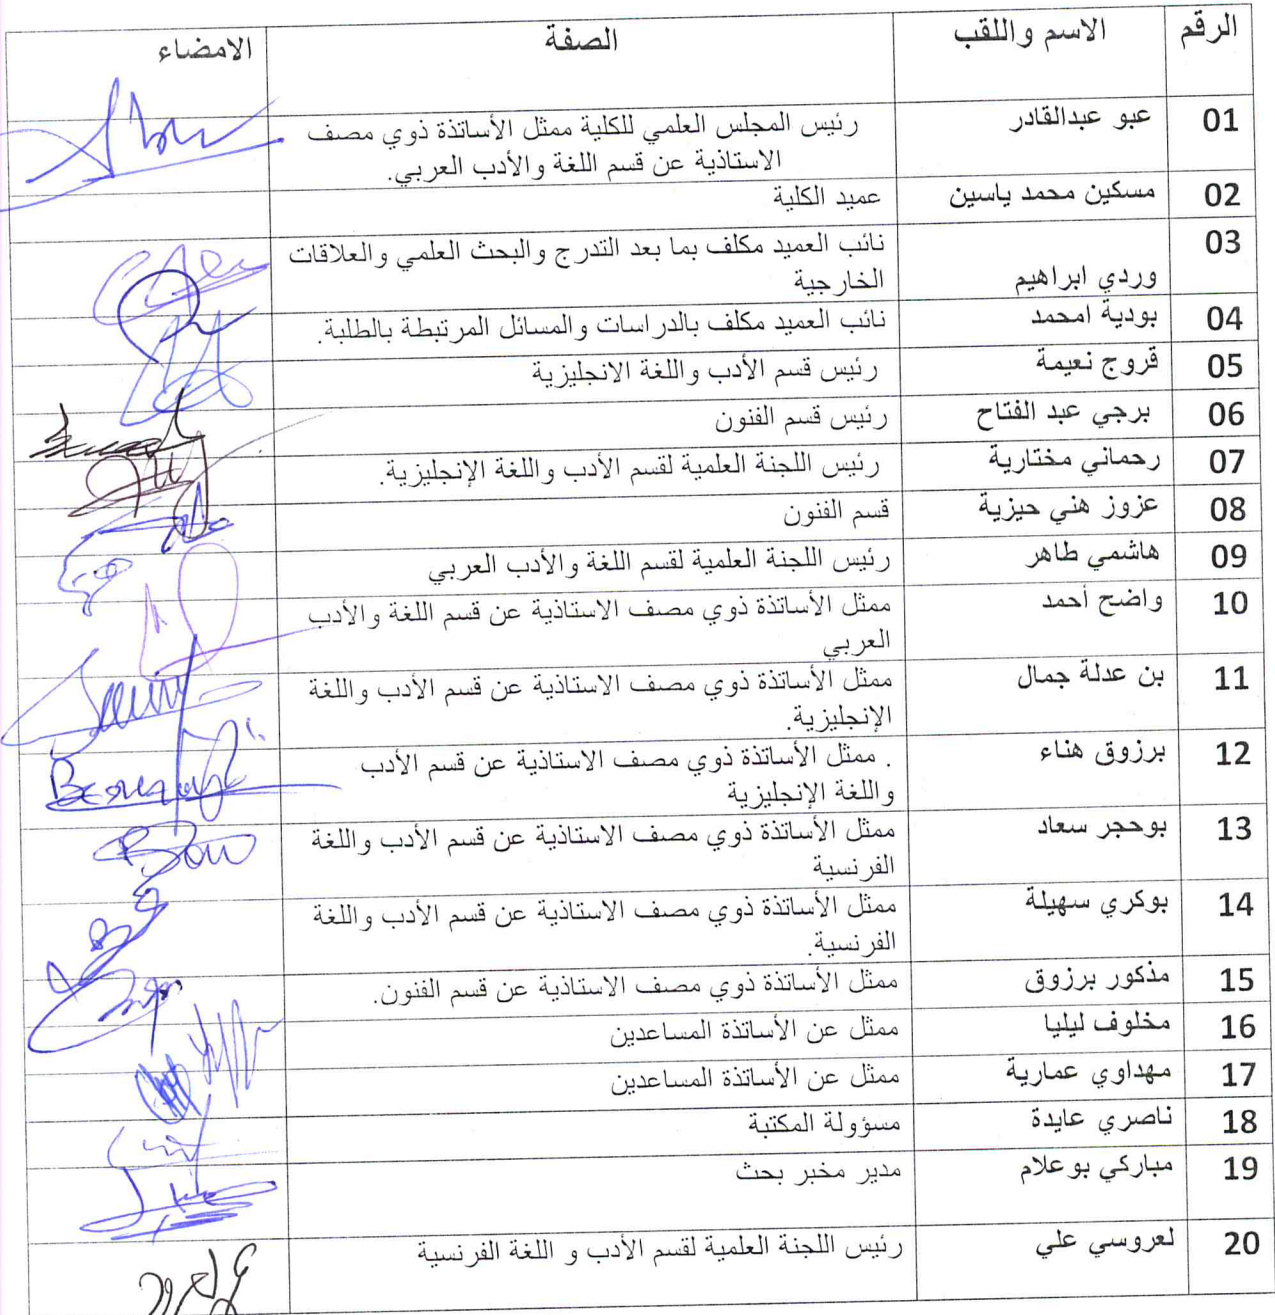 الرقم الاسم واللقب الصفة الامضاء
01 عبو عبدالقادر رئيس المجلس العلمي للكلية ممثل الأساتذة ذوي مصف
الاستاذية عن قسم اللغة والأدب العربي.
02 مسكين محمد ياسين عميد الكلية
03 نائب العميد مكلف بما بعد التدرج والبحث العلمي والعلاقات
وردي ابراهيم الخارجية
04 بودية امحمد نائب العميد مكلف بالدراسات والمسائل المرتبطة بالطلبة.
05 قروج نعيمة رئيس قسم الأدب واللغة الانجليزية
06 برجي عبد الفتاح رئيس قسم الفنون
07 رحماني مختارية رئيس اللجنة العلمية لقسم الأدب واللغة الإنجليزية.
08 عزوز هني حيزية قسم الفنون
09 هاشمي طاهر رئيس اللجنة العلمية لقسم اللغة والأدب العربي
10 واضح أحمد ممثل الأساتذة ذوي مصف الاستاذية عن قسم اللغة والأدب
العربي
11 بن عدلة جمال ممثل الأساتذة ذوي مصف الاستاذية عن قسم الأدب واللغة
الإنجليزية.
12 برزوق هناء . ممثل الأساتذة ذوي مصف الاستاذية عن قسم الأدب
واللغة الإنجليزية
13 بوحجر سعاد ممثل الأساتذة ذوي مصف الاستاذية عن قسم الأدب واللغة
الفرنسية
14 بوكري سهيلة ممثل الأساتذة ذوي مصف الاستاذية عن قسم الأدب واللغة
الفرنسية.
15 مذكور برزوق ممثل الأساتذة ذوي مصف الاستاذية عن قسم الفنون.
16 مخلوف ليليا ممثل عن الأساتذة المساعدين
17 مهداوي عمارية ممثل عن الأساتذة المساعدين
18 ناصري عايدة مسؤولة المكتبة
19 مباركي بوعلام مدير مخبر بحث
20 لعروسي علي رئيس اللجنة العلمية لقسم الأدب و اللغة الفرنسية